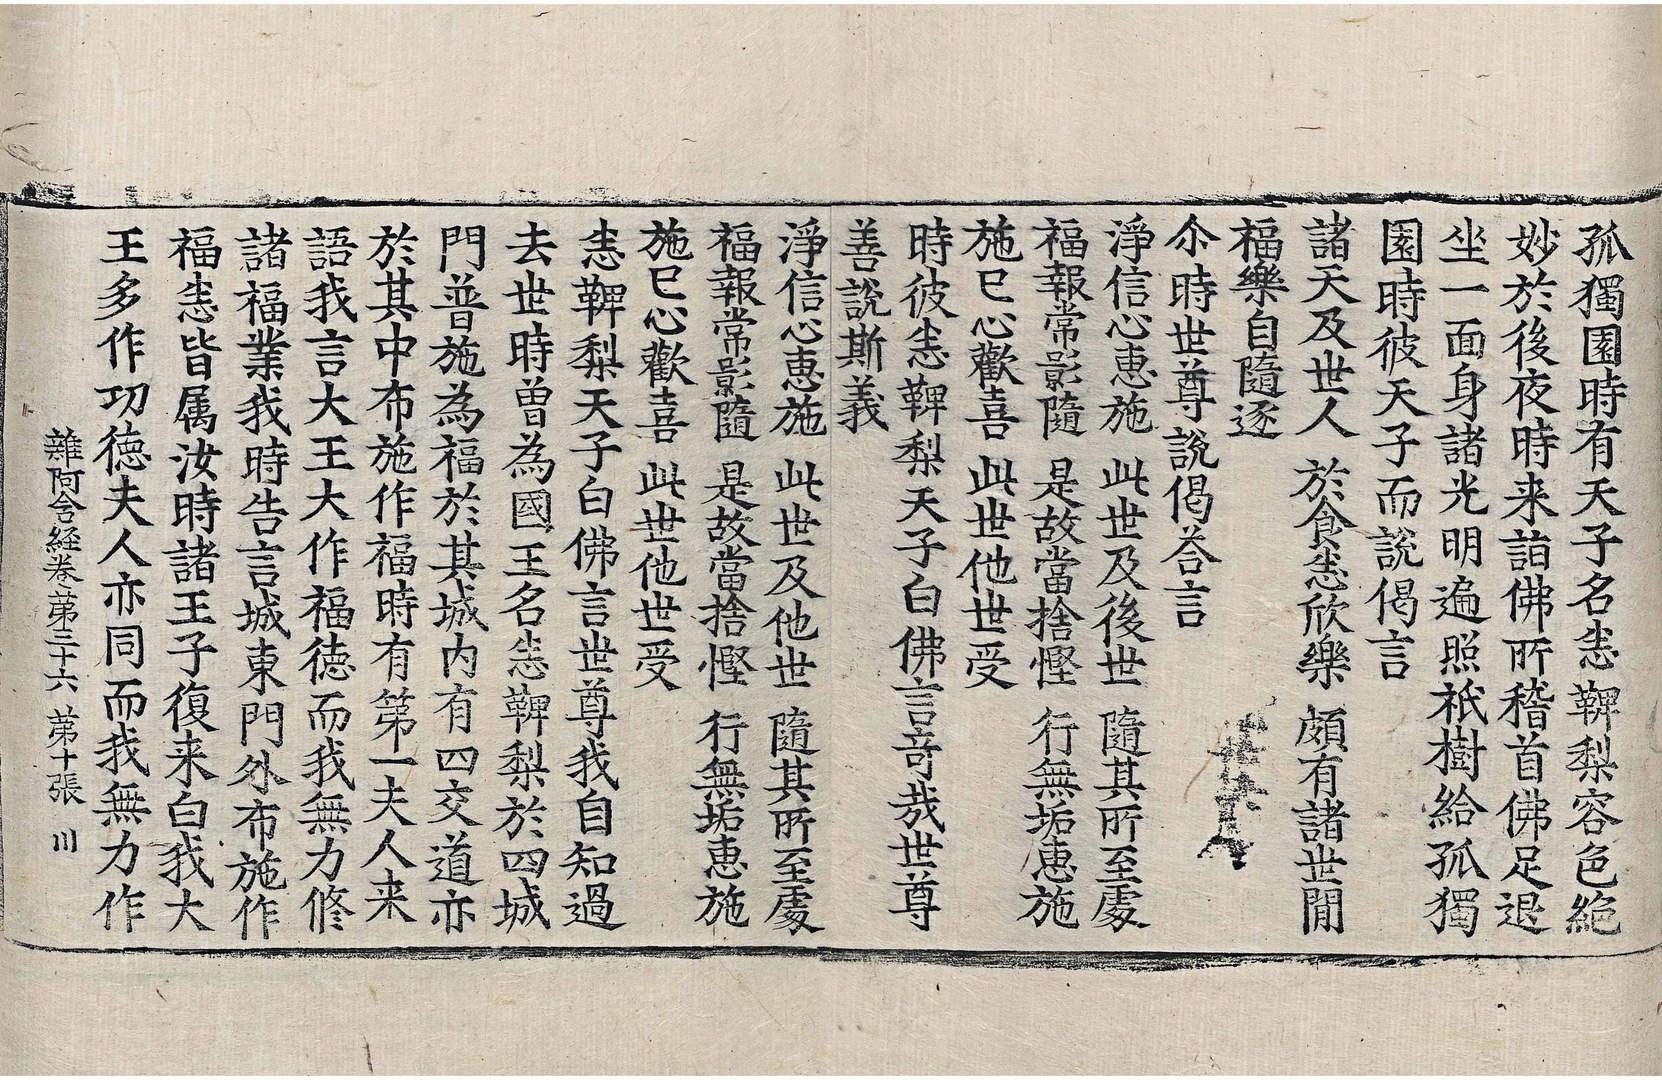 孤獨園時有天子名悉鞞梨容色絶
妙於後夜時来詣佛所稽首佛足退
坐一面身諸光明遍照祇樹給孤獨
園時彼天子而說偈言
諸天及世人　於食悉欣樂　頗有諸世閒
福樂自隨逐
尒時世尊說偈荅言
淨信心惠施　此世及後世　隨其所至處
福報常影隨　是故當捨慳　行無垢惠施
施已心歡喜　此世他世受
時彼悉鞞梨天子白佛言竒哉世尊
善說斯義
淨信心惠施　此世及他世　隨其所至處
福報常影隨　是故當捨慳　行無垢惠施
施已心歡喜　此世他世受
悉鞞梨天子白佛言世尊我自知過
去世時曾為國王名悉鞞梨於四城
門普施為福於其城内有四交道亦
於其中布施作福時有第一夫人来
語我言大王大作福徳而我無力修
諸福業我時告言城東門外布施作
福悉皆属汝時諸王子復来白我大
王多作功徳夫人亦同而我無力作
雜阿含経卷苐三十六　苐十張　川